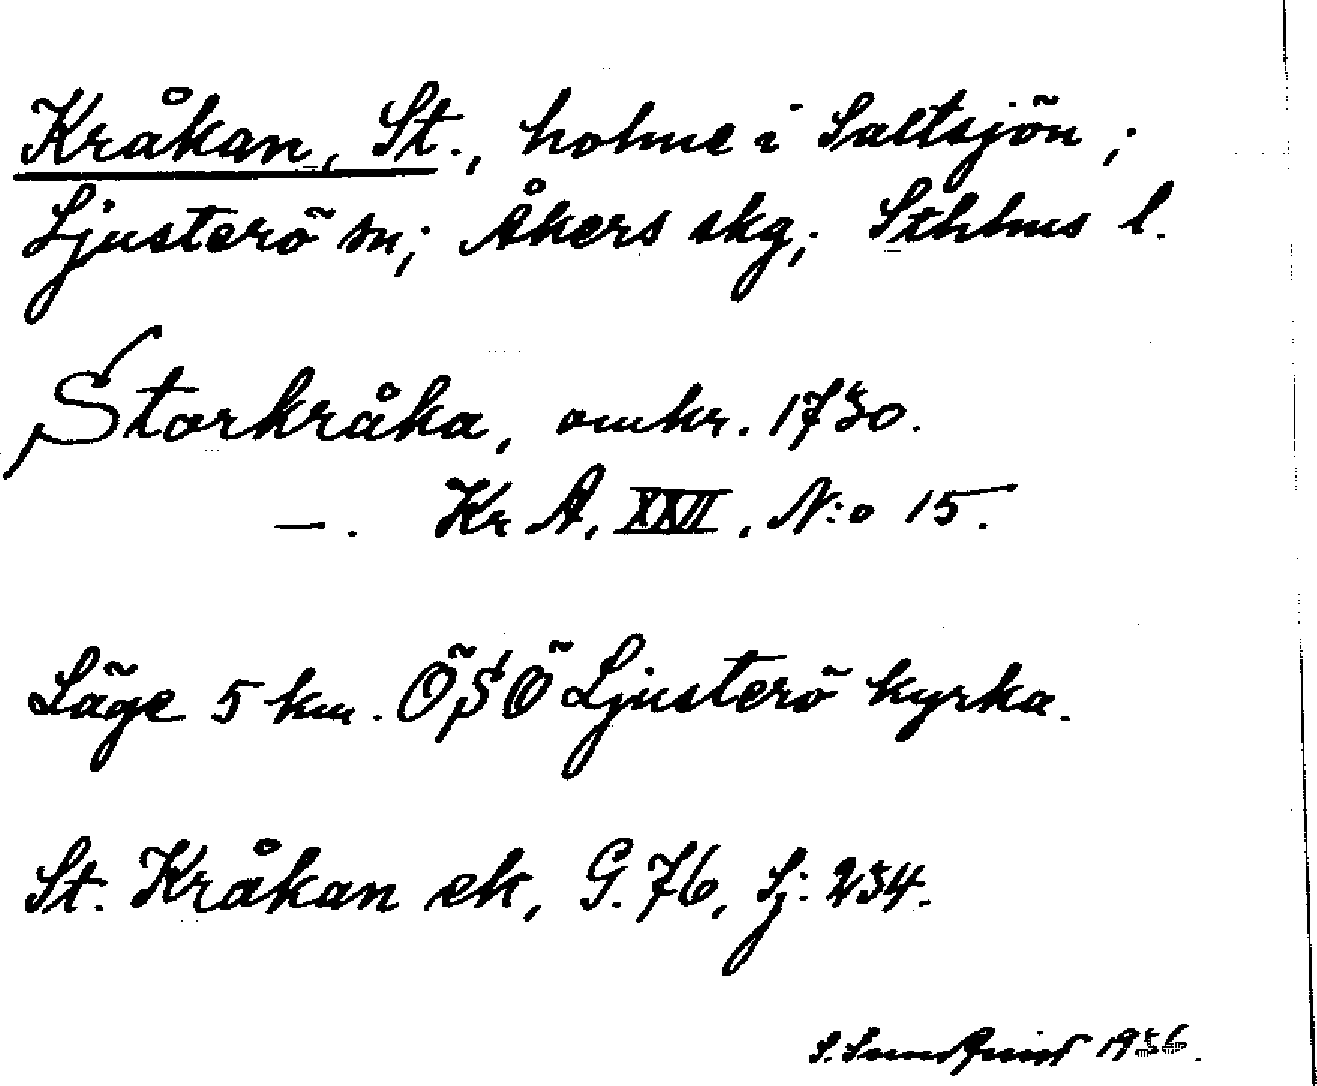 Kråkan, St., holme i Saltsjön;
Ljusterö sn; Åkers skg; Sthlms l.
Storkråka, omkr. 1730.
—. Kr A, XXVI, N:o 15.
Läge 5 km. ÖSÖ Ljusterö kyrka.
St. Kråkan ek, G. 76, Lj: 234.
1936.